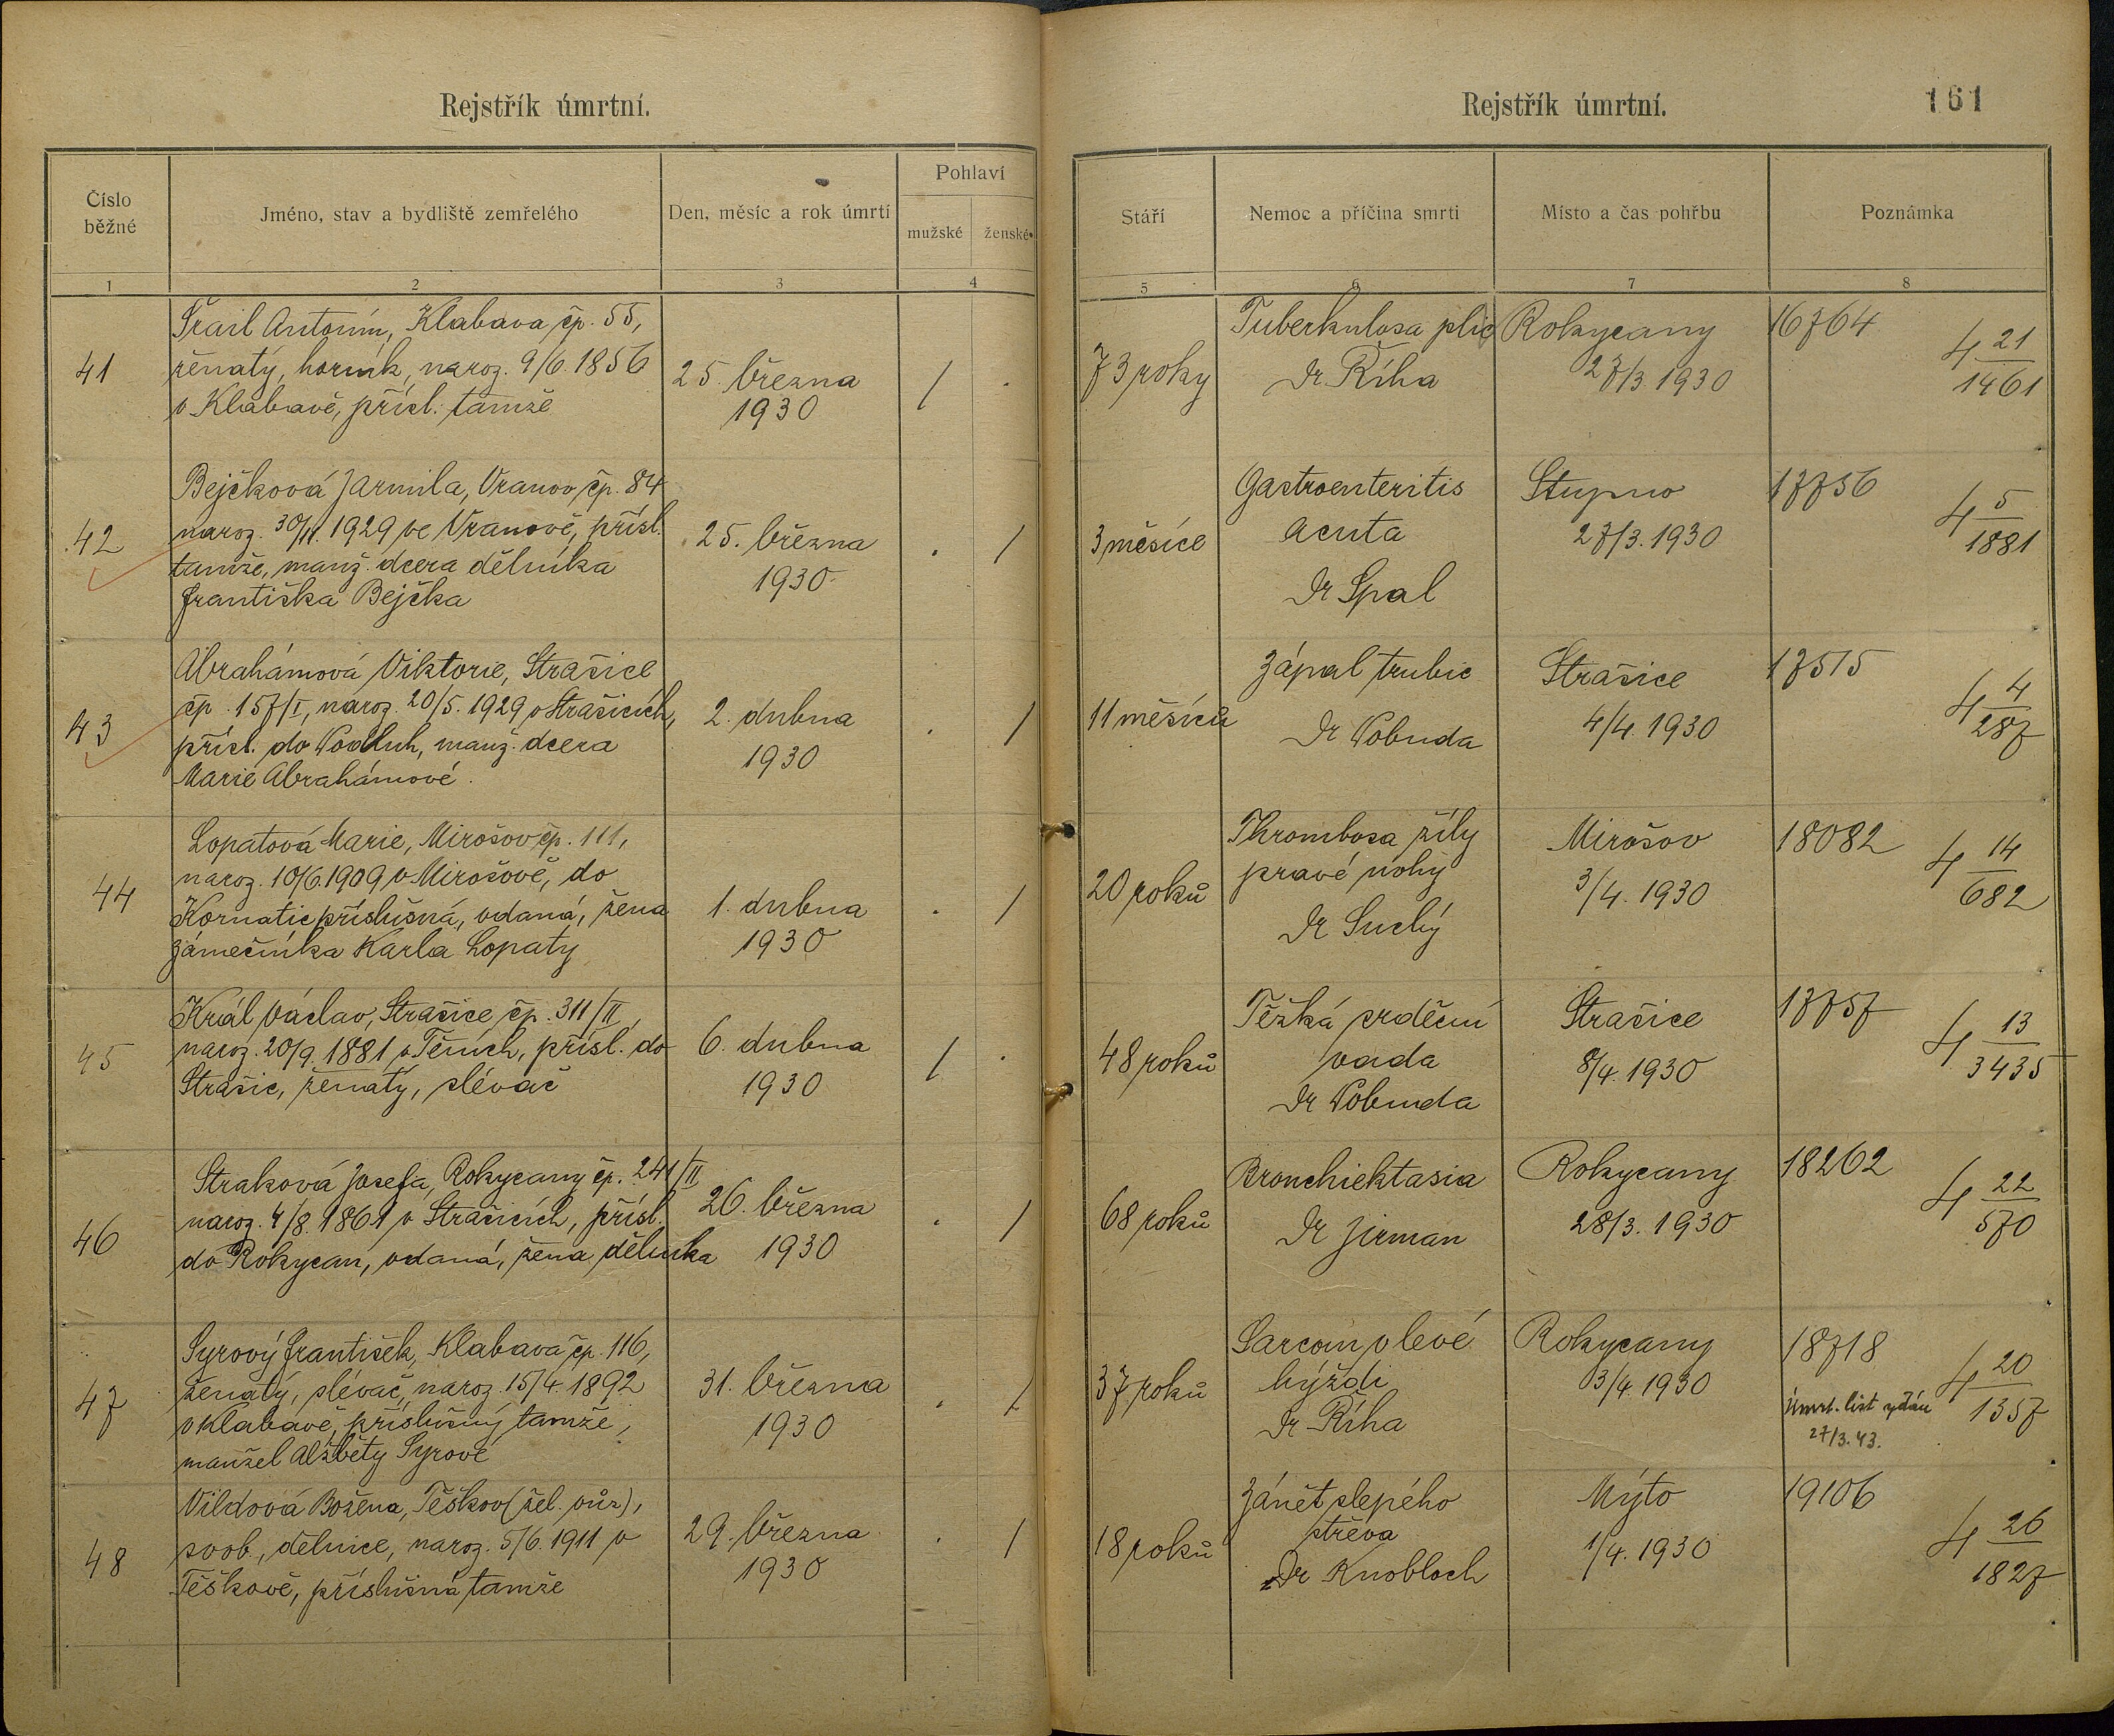 Rejstřík úmrtní.
Číslo běžné
Jméno, stav a bydliště zemřelého
Den, měsíc a rok úmrtí
Pohlaví
mužské
ženské
1
2
3
4
41
Šrail Antonín, Klabava čp. 55,
ženatý, horník, naroz. 9/6. 1856
v Klabavě, přísl. tamže
25. března
1930
/ .
42
Bejčková Jarmila, Vranov čp. 84
naroz. 30/11. 1929 ve Vranově, přísl.
tamže, manž. dcera dělníka
Františka Bejčka
25. března
1930
. /
43
Abrahámová Viktorie, Strašice
čp. 157/I, naroz. 20/5. 1929 v Strašicích,
přísl. do Vodluh, manž. dcera
Marie Abrahámové.
2. dubna
1930
. /
44
Lopatová Marie, Mirošov čp. 111,
naroz. 10/6. 1909 v Mirošově, do
Kornatic příslušná, vdaná, žena
zámečníka Karla Lopaty
1. dubna
1930
. /
45
Král Václav, Strašice čp. 311/II,
naroz. 20/9. 1881 v Těních, přísl. do
Strašic, ženatý, slévač
6. dubna
1930
/ .
46
Straková Josefa, Rokycany čp. 241/II
naroz. 4/8. 1861 v Strašicích, přísl.
do Rokycan, vdaná, žena dělníka
26. března
1930
. /
47
Syrový František, Klabava čp. 116,
ženatý, slévač, naroz. 15/4. 1892
v Klabavě, příslušný tamže,
manžel Alžběty Syrové
31. března
1930
. /
48
Vildová Božena, Těškov (žel. vůz),
svob., dělnice, naroz. 5/6. 1911 v
Těškově, příslušná tamže
29. března
1930
. /
Rejstřík úmrtní.
161
Stáří
Nemoc a příčina smrti
Místo a čas pohřbu
Poznámka
5
6
7
8
73 roky
Tuberkulosa plic
Dr. Říha
Rokycany
27/3. 1930
16764
4 21/1461
3 měsíce
Gastroenteritis
acuta
Dr Spal
Stupno
27/3. 1930
17756
4 5/1881
11 měsíců
Zápal trubic
Dr Pobuda
Strašice
4/4. 1930
17515
4 4/287
20 roků
Thrombosa žíly
pravé nohy
Dr Suchý
Mirošov
3/4. 1930
18082
4 14/682
48 roků
Těžká srdeční
vada
Dr Pobuda
Strašice
8/4. 1930
17757
4 13/3435
68 roků
Bronchiektasia
Dr Jirman
Rokycany
28/3. 1930
18262
4 22/570
37 roků
Sarcom v levé
hýždi
Dr Říha
Rokycany
3/4. 1930
18718
Úmrt. list vydán
27/3. 43.
4 20/1357
18 roků
Zánět slepého
střeva
Dr Knobloch
Mýto
1/4. 1930
19106
4 26/1827